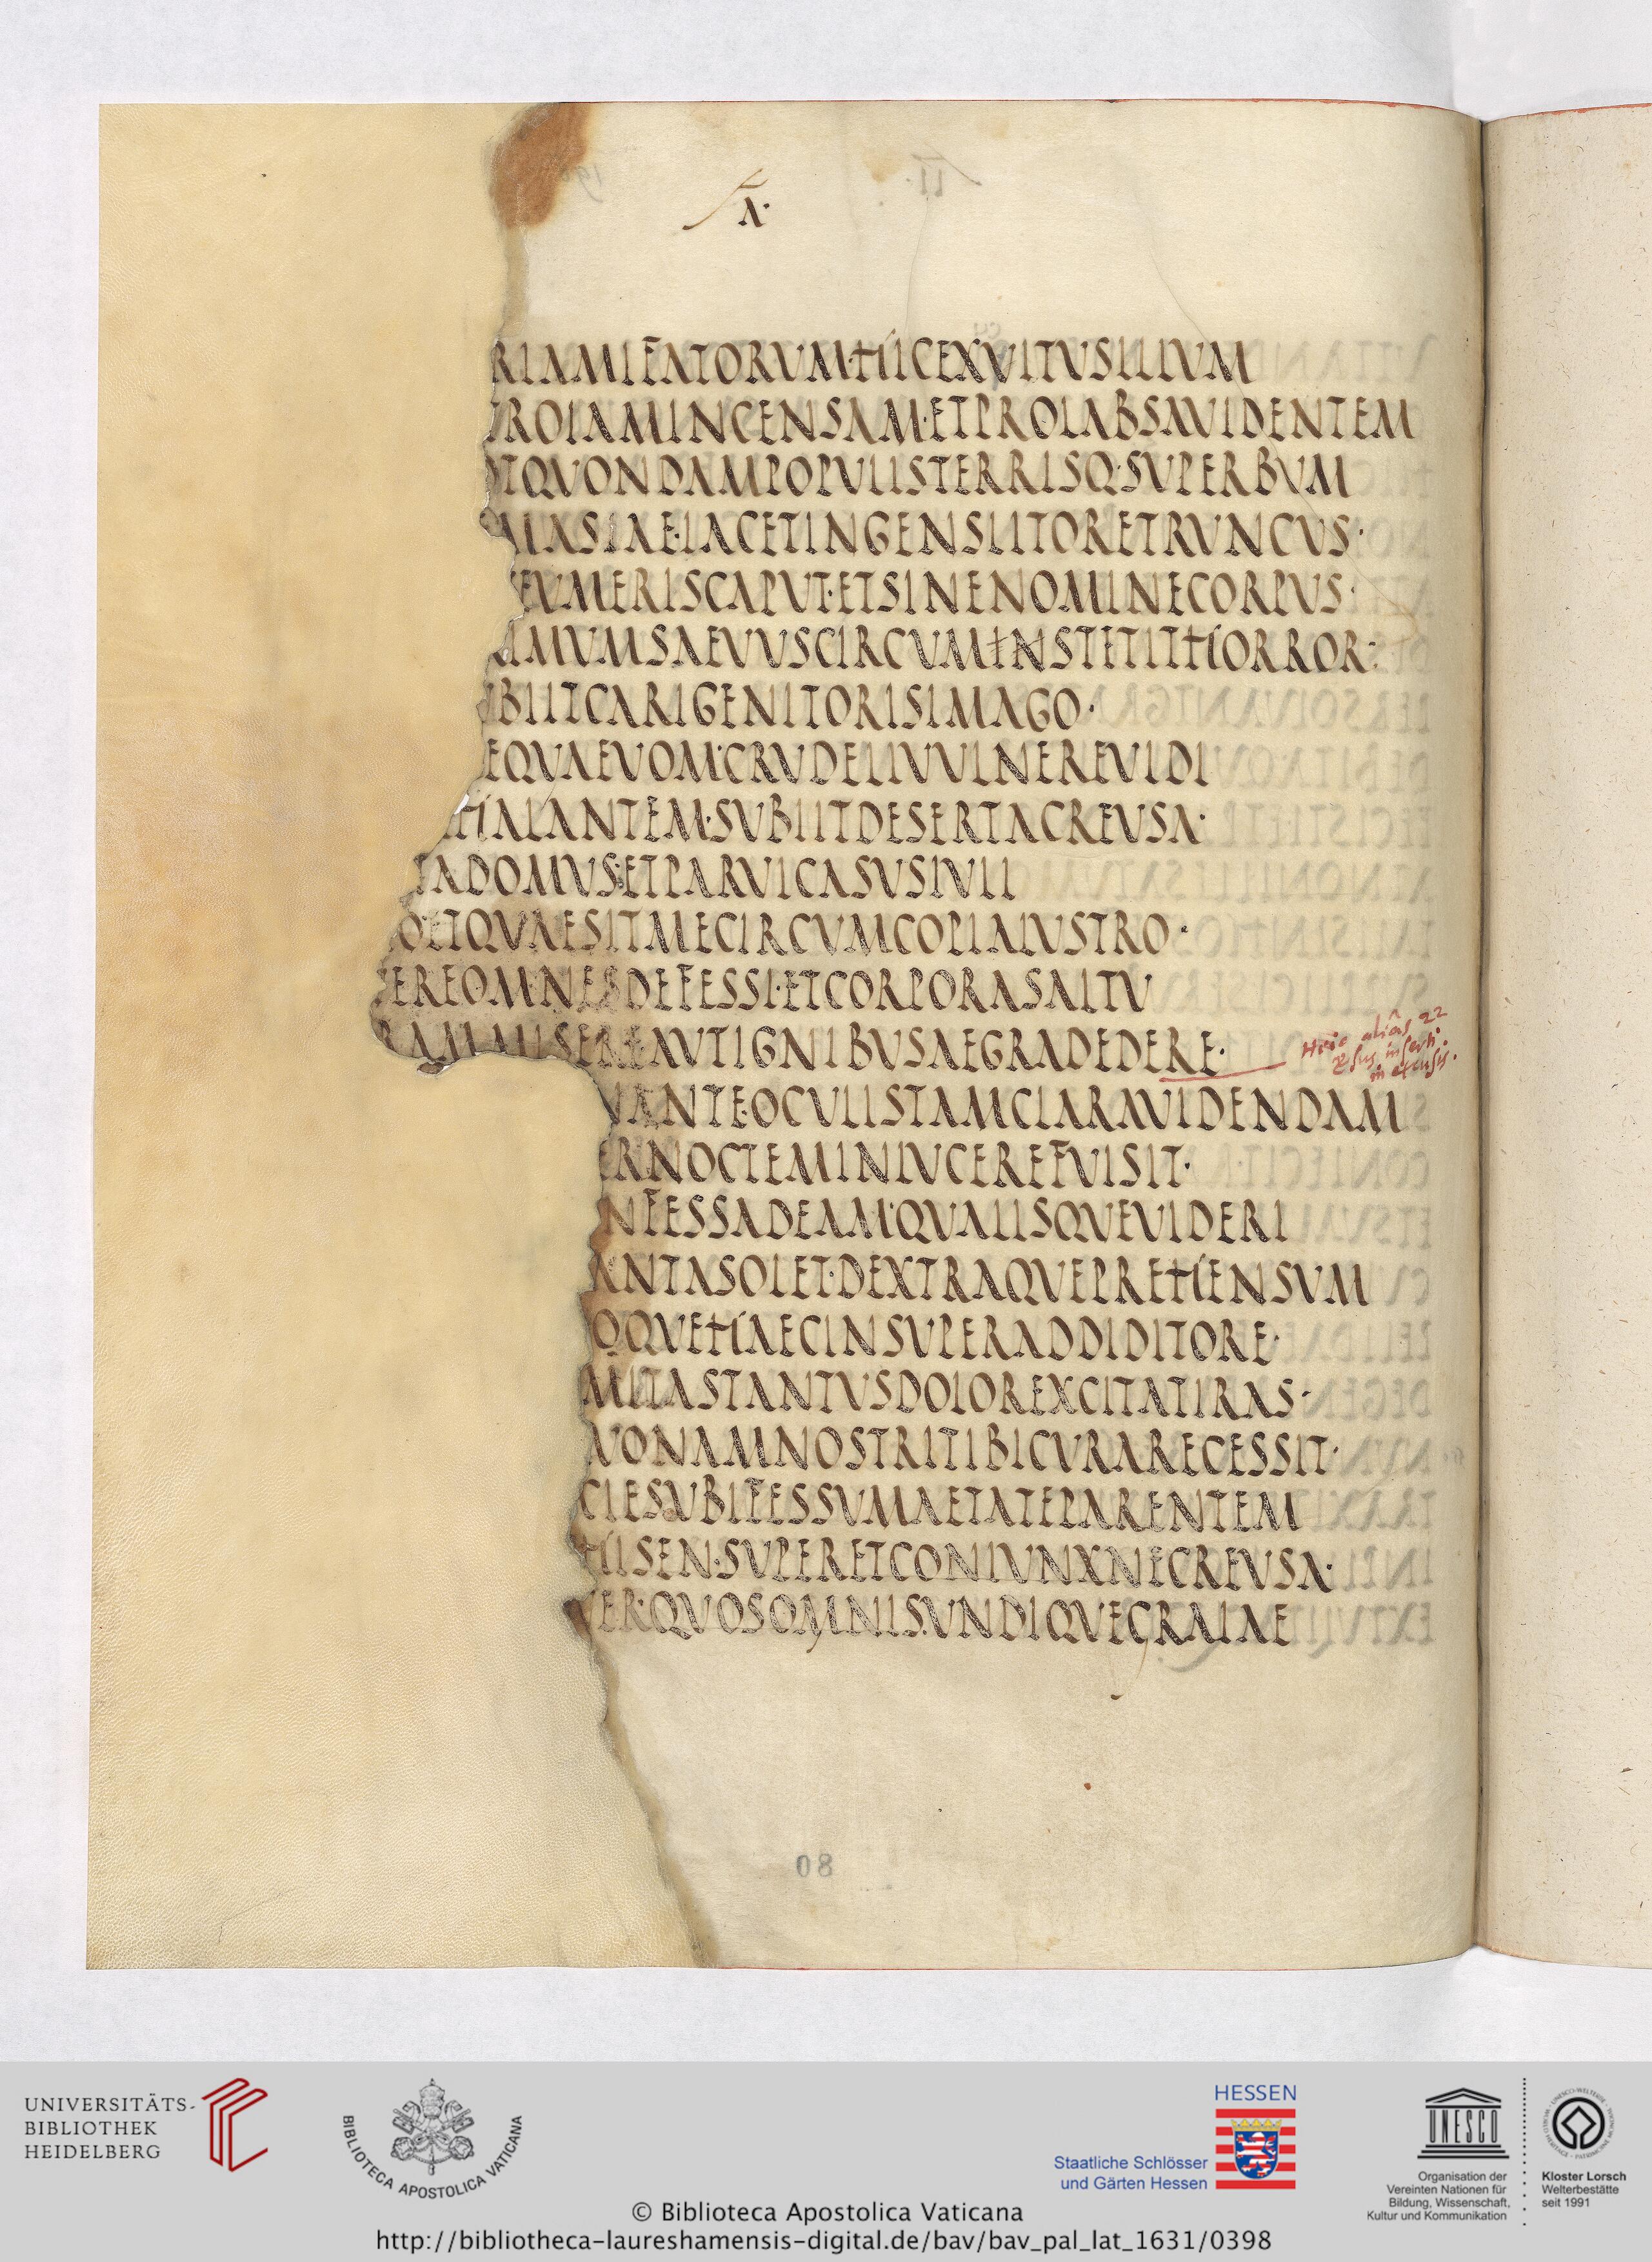 A·
RIAMIFATORVM·HICEXVITUSILLVM
TROIAMINCENSAM·ETPROLABSAVIDENTEM
OTQVONDAMPOPVLISTERRISQ·SVPERBVM
MASIAE·IACETINGENSLITORETRVNCVS·
EVMERISCAPVT·ETSINENOMINECORPVS·
IMVMSAEVVSCIRCVMINSTETITHORROR·
BIITCARIGENITORISIMAGO·
EQVAEVOM·CRVDELIVVLNEREVIDI
HALANTEM·SVBIITDESERTACREVSA·
TADOMVS·ETPARVICASVSIVLI
OETQVAESITMECIRCVMCOPIALVSTRO·
EREOMNESDEFESSI·ETCORPORASALTV
RAMMISEREAVTIGNIBVSAEGRADEDERE·
Heic aliâs 22
vsus inserti
in excusis.
ANTEOCVLISTAMCLARAVIDENDAM
ERNOCTEMINLVCEREFVISIT·
NFESSADEAM·QVALISQVEVIDERI
ANTASOLET·DEXTRAQVEPREHENSVM
OQVEHAECINSVPERADDIDITORE·
MITASTANTVSDOLOREXCITATIRAS·
VONAMNOSTRITIBICVRARECESSIT·
CIESVBIFESSVMAETATEPARENTEM
HISEN·SVPERETCONIVNXNECREVSA·
ER·QVOSOMNISVNDIQVEGRAIAE
08
UNIVERSITÄTS-
BIBLIOTHEK
HEIDELBERG
BIBLIOTECA APOSTOLICA VATICANA
HESSEN
Staatliche Schlösser
und Gärten Hessen
UNESCO
Organisation der
Vereinten Nationen für
Bildung, Wissenschaft,
Kultur und Kommunikation
Kloster Lorsch
Welterbestätte
seit 1991
© Biblioteca Apostolica Vaticana
http://bibliotheca-laureshamensis-digital.de/bav/bav_pal_lat_1631/0398